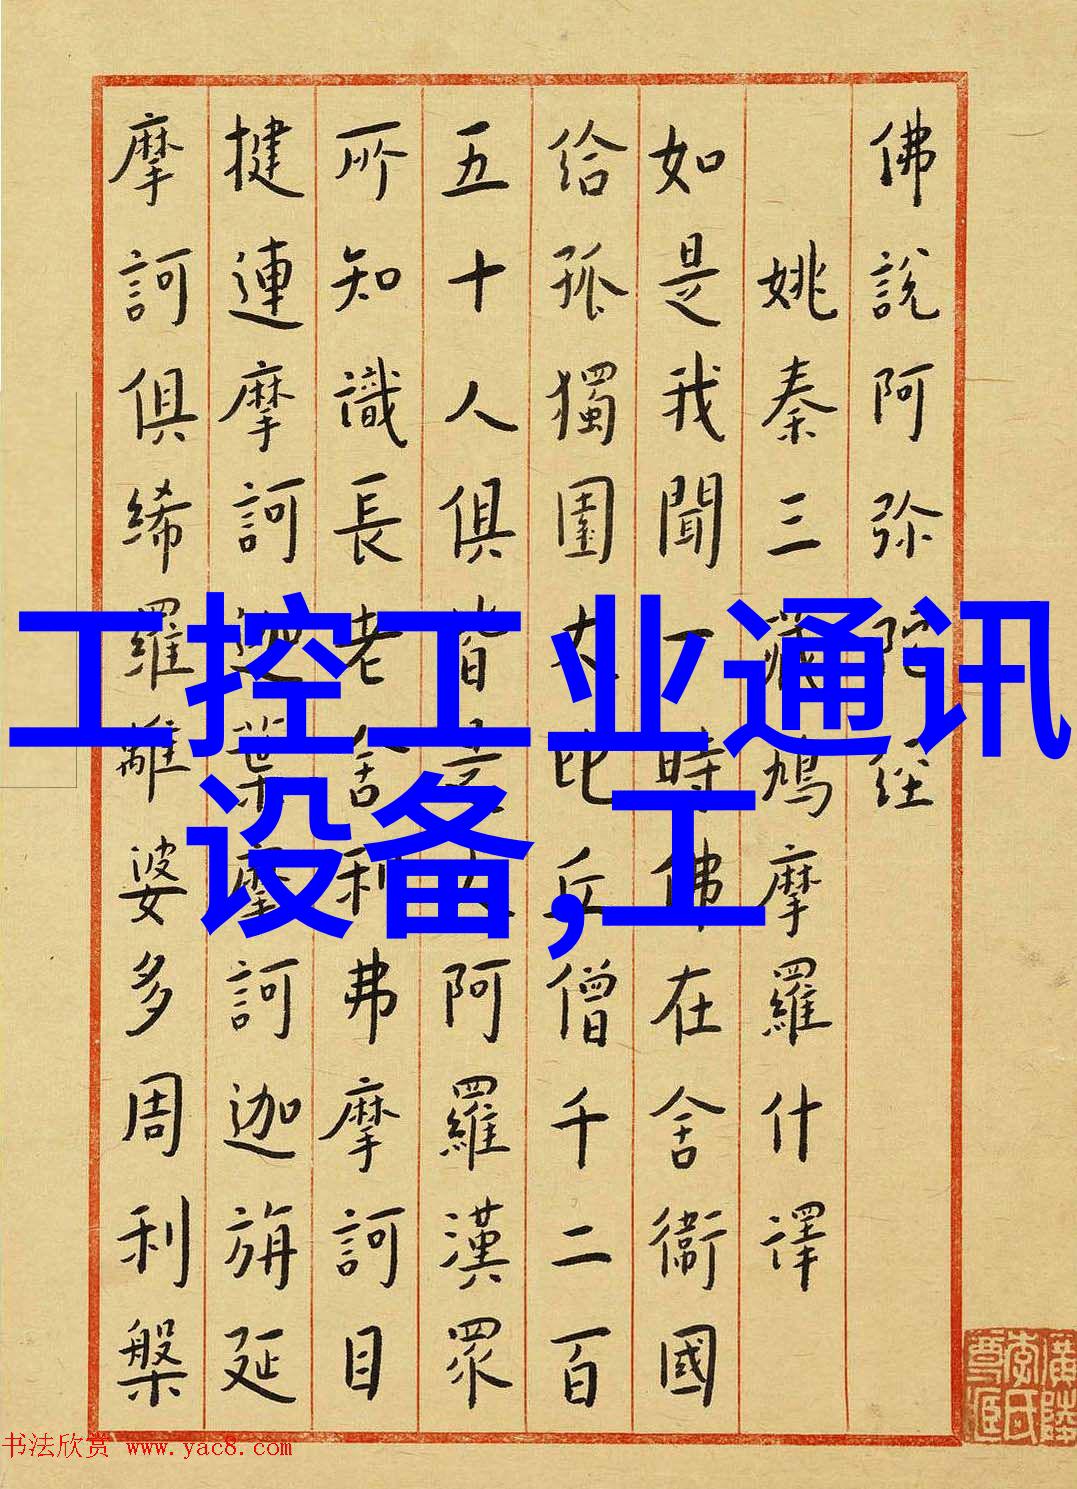 佛說阿弥陀経
姚秦三藏鳩摩羅什譯
如是我聞一時佛在舍衛國
給孤獨園大比丘僧千二百
五十人俱皆是大阿羅漢眾
所知識長老舍利弗摩訶目
揵連摩訶迦葉摩訶迦旃延
摩訶俱絺羅離婆多周利槃
工控工业通讯
设备,工
书法欣赏 www.yac8.com